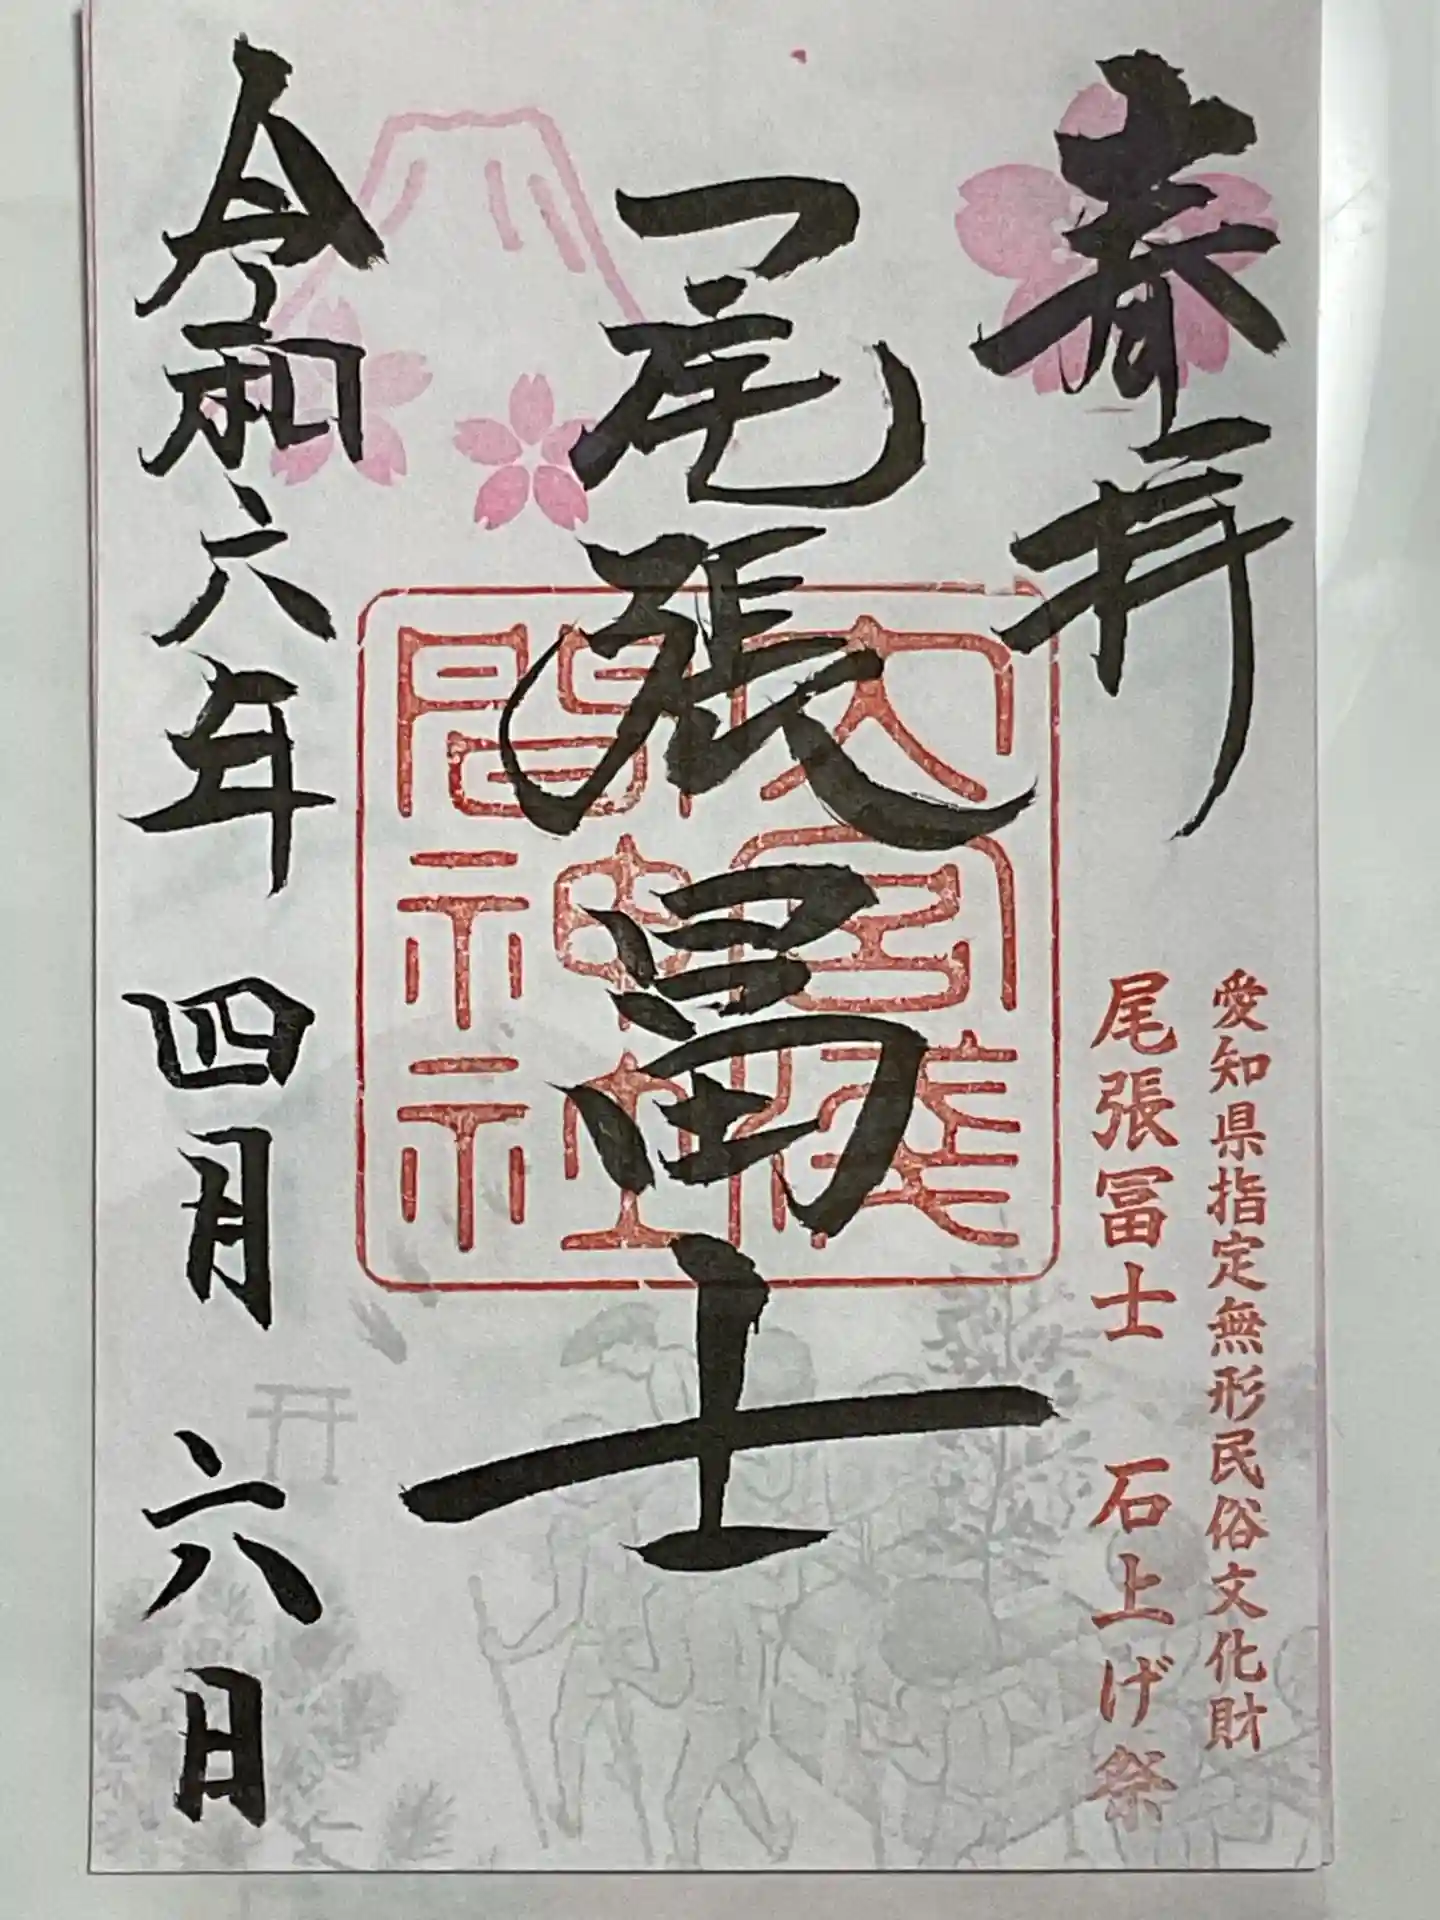 奉拝
愛知県指定無形民俗文化財
尾張冨士 石上げ祭
尾張冨士
大宮淺
間神社
令和六年 四月 六日